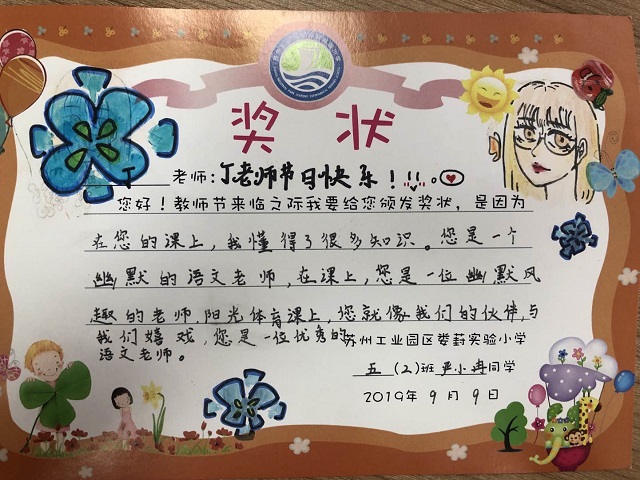 奖状
丁老师:丁老师节日快乐！!!。
您好！教师节来临之际我要给您颁发奖状，是因为
在您的课上，我懂得了很多知识。您是一个
幽默的语文老师，在课上，您是一位幽默风
趣的老师，阳光体育课上，您就像我们的伙伴，与
我们嬉戏，您是一位优秀的
语文老师。
苏州工业园区娄葑实验小学
五(2)班严小冉同学
2019年9月9日